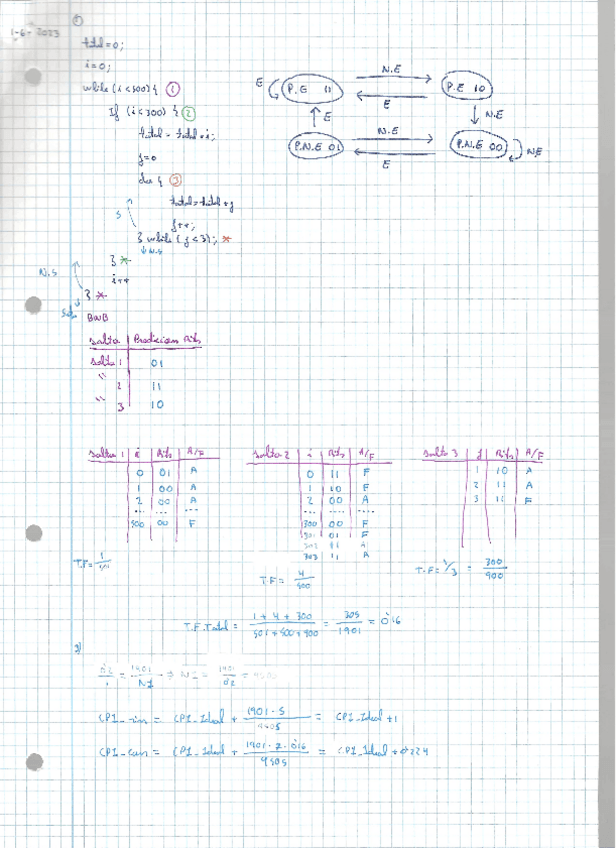 1-6-2023
①
total=0;
i=0;
while (i<500){ ①
If (i<300) { ②
total = total+i;
j=0
do { ③
total=total+j
j++;
S } while (j<3); *
↓N.S
} *
i++
N.S } *
BWB
P.E 11
N.E
P.E 10
E
E
E
N.E
P.N.E 01
N.E
P.N.E 00
N.E
E
salto | Prediccion Bits
salto 1 | 01
" 2 | 11
" 3 | 10
salto 1 | i | Bits | A/F
0 | 01 | A
1 | 00 | A
2 | 00 | A
... | ... | ...
500 | 00 | F
T.F = 1/501
salto 2 | i | Bits | A/F
0 | 11 | F
1 | 10 | F
2 | 00 | A
... | ... | ...
300 | 00 | F
301 | 01 | F
302 | 11 | A
303 | 11 | A
T.F = 4/500
salto 3 | j | Bits | A/F
1 | 10 | A
2 | 11 | A
3 | 11 | F
T.F = 1/3 = 300/900
T.F. Total = (1+4+300)/(501+500+900) = 305/1901 = 0'16
2)
CPI_sin = CPI_Ideal + 1901·5/9505 = CPI_Ideal + 1
CPI_con = CPI_Ideal + 1901·7·0'16/9505 = CPI_Ideal + 0'224